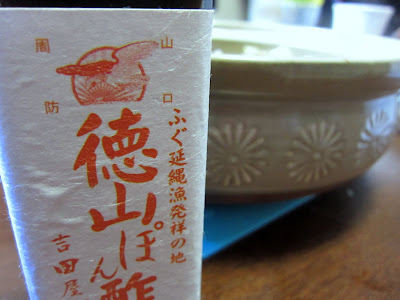 山口
周防
ふぐ延縄漁発祥の地
徳山ぽん酢
吉田屋